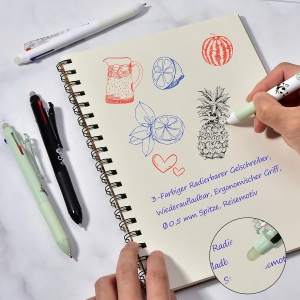 3-Farbiger Radierbarer Gelschreiber,
Wiederaufladbar, Ergonomischer Griff,
Ø0,5 mm Spitze, Reisemotiv
Radir
ladb
S
emoti